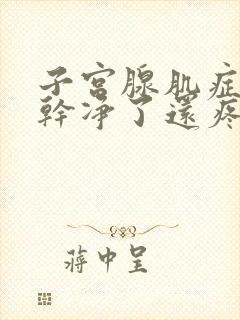 子宫腺肌症
幹净了還疼
蒋中呈